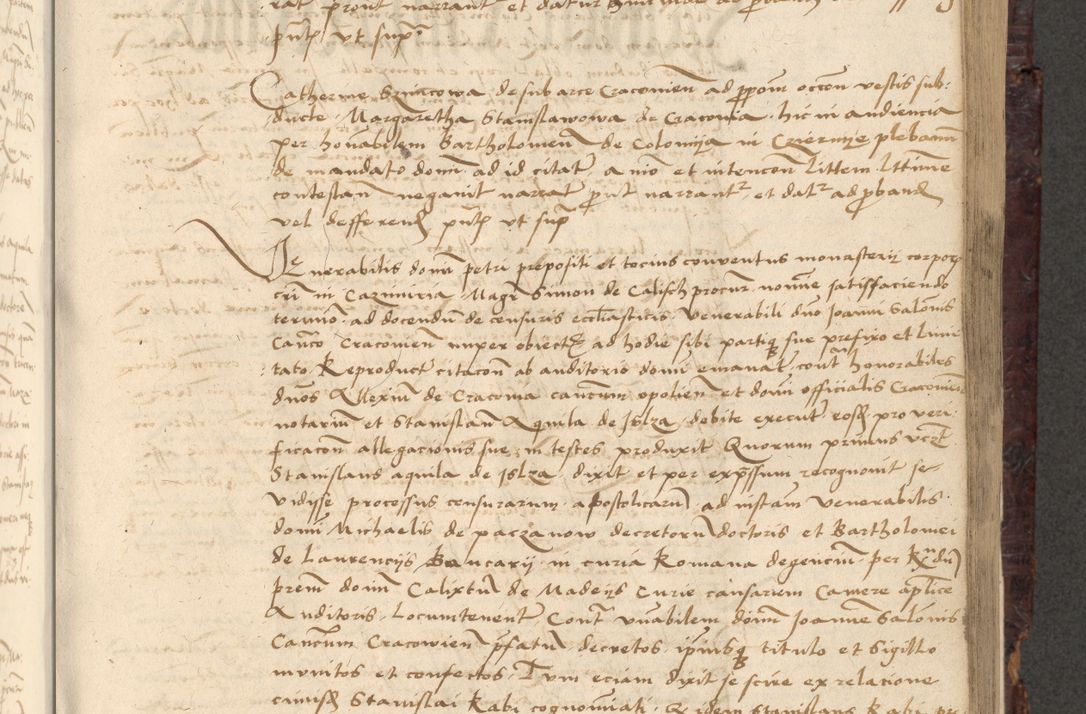 rat prout narrant et datur
pntp ut supr
Catherine Szmaczowa de sub arce Cracovien ad propom occon vestis sub
ducte Margaretha Stanislawowa de Cracovia hic in audiencia
per honabilem Bartholomeu de Colomija in Czermije plebanu
de mandato domi ad id citat a mo et intencon littem lttime
contestan negavit narrat prout narrantr et datr ad proband
vel defferend pntp ut supr
Venerabilis domi Petri prepositi et tocius conventus monasterij corporis
cri in Cazimiria Magr Simon de Calisch procur nomine satisfaciendo
termio ad docendu de censuris eccliasticis venerabili dno Joanni Salomis
Canco Cracovien nuper obiectis ad hodie sibi partiqz sue prefixo et limi
tato Reproduct citacon ab auditorio domi emanat cont honorabiles
dnos Allexiu de Cracovia cancum opolien et domi officialis Cracovien
notarium et Stanislau Aquila de Jslza debite execut eosqz pro veri
ficacon allegacionis sue in testes produxit Quorum primus vczt
Stanislaus aquila de Jslza dixit et per expssum recognovit se
vidisse processus censurarum apostolicarum ad instam venerabilis
domi Michaelis de paczanow decretoru doctoris et Bartholomei
de Laurencijs Bancarij in curia Romana degenciu per Rx du
prem domi Calixtum de Madeijs Curie causarum Camere aplice
Auditoris Locumtenent Cont vnabilem domi Joanne Salomis
Cancum Cracovien pfatu decretos ipiusqz titulo et Sigillo
munitos et confectos Tum eciam dixit se scire ex relacione
eiusqz Stanislai Rabi cognomiati Q idem Stanislaus Rabi pre